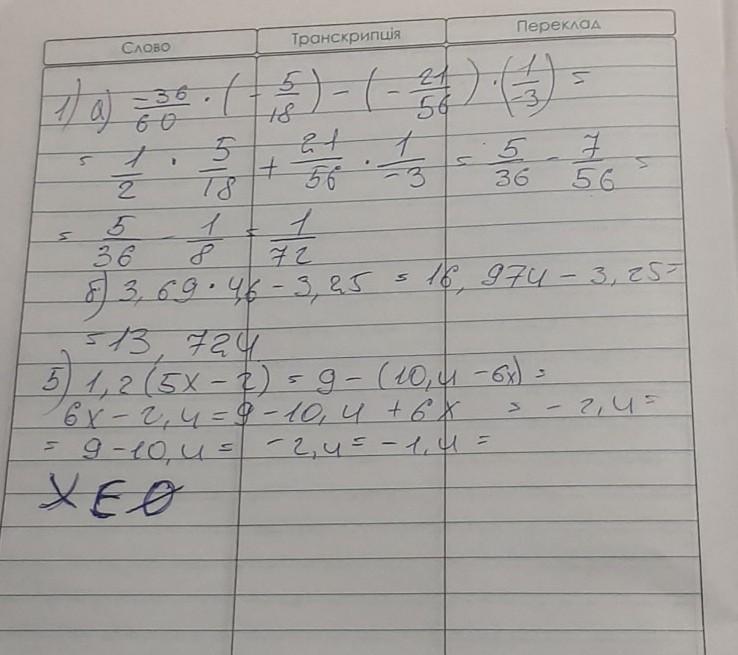 Слово Транскрипція Переклад
1) а) -36/60 · (- 5/18) - (- 21/56) · (1/-3) =
= 1/2 · 5/18 + 21/56 · 1/-3 = 5/36 - 7/56 =
= 5/36 - 1/8 = 1/72
б) 3,69 · 4,6 - 3,25 = 16,974 - 3,25 =
= 13,724
5) 1,2(5x - 2) = 9 - (10,4 - 6x) =
6x - 2,4 = 9 - 10,4 + 6x = -2,4 =
= 9 - 10,4 = -2,4 = -1,4 =
X ∈ ∅